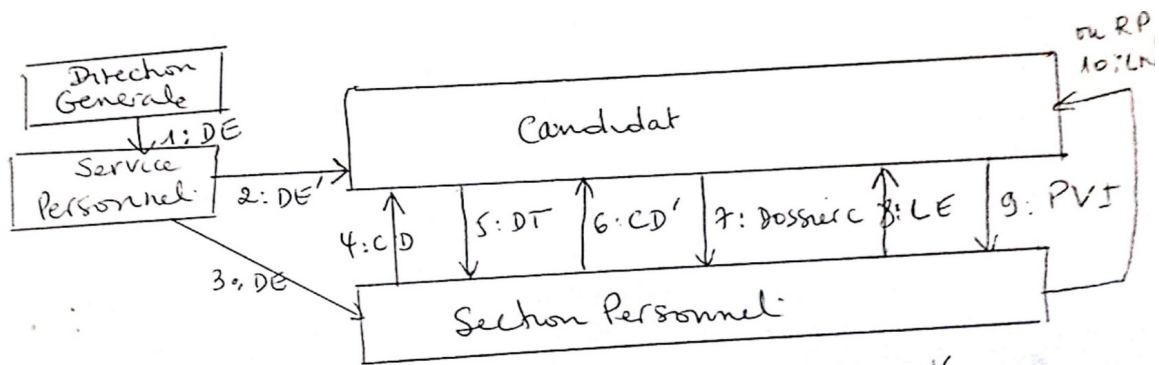 Direction
Generale
1: DE
Service
Personnel
2: DE'
3: DE
Candidat
ou RP
10: LN
4: CD
5: DT
6: CD'
7: Dossier C
8: LE
9: PVI
Section Personnel